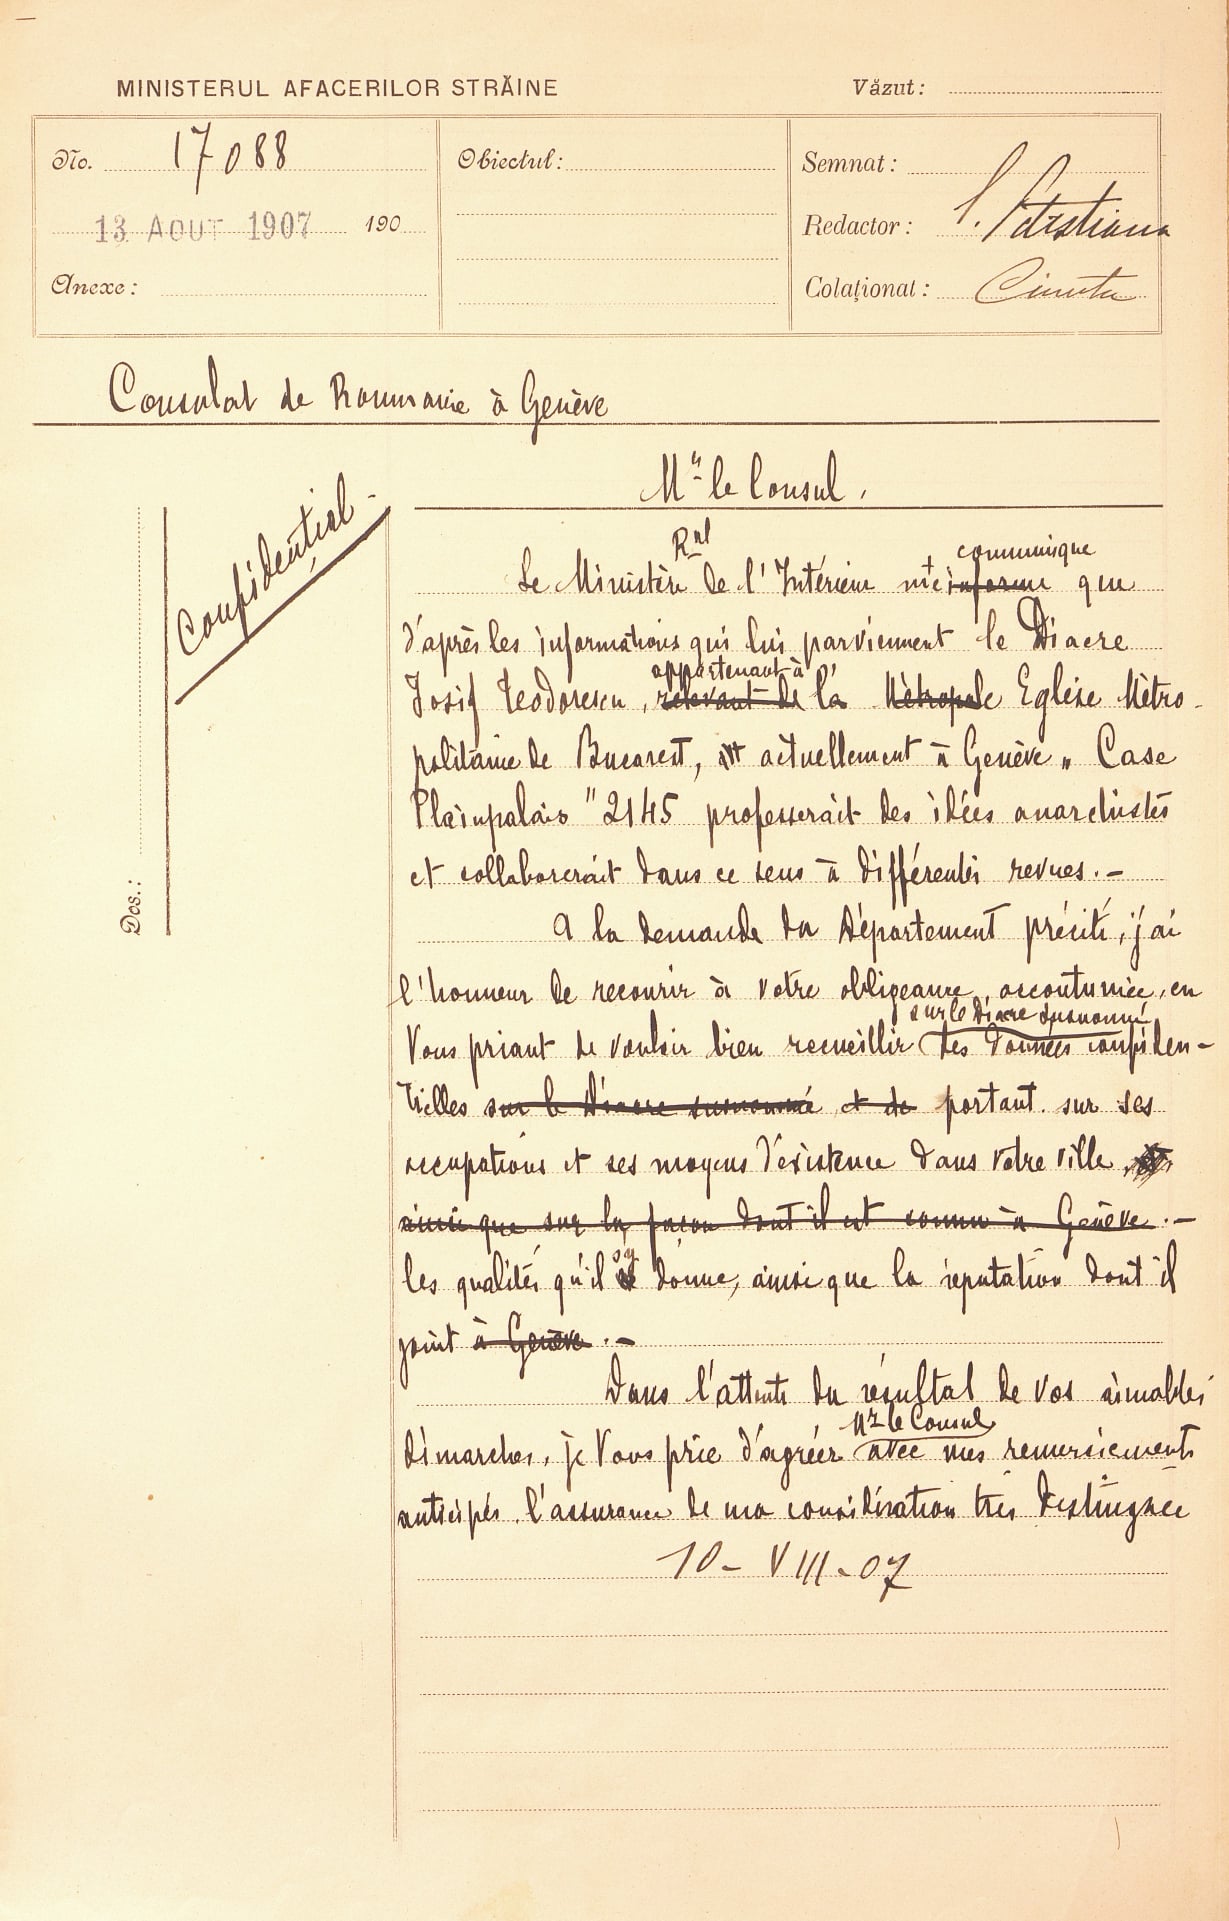 MINISTERUL AFACERILOR STRĂINE
Văzut:
No. 17088
13 AOUT 1907 190
Anexe:
Obiectul:
Semnat:
Redactor:
Colaționat:
Consulat de Roumanie à Genève
Confidențial
Dos.:
Mr le Consul,
Ral communique
Le Ministère de l'Intérieur me informe que
d'après les informations qui lui parviennent le Diacre
appartenant à
Iosif Teodorescu, relevant de la Métropole Eglise Métro-
politaine de Bucarest, actuellement à Genève „Case
Plainpalais" 2145 professerait des idées anarchistes
et collaborerait dans ce sens à différentes revues.-
A la demande du Département précité, j'ai
l'honneur de recourir à votre obligeance accoutumée, en
sur le Diacre susnommé
Vous priant de vouloir bien recueillir des données confiden-
tielles sur le Diacre susnommé et de portant sur ses
occupations et ses moyens d'existence dans votre ville
ainsi que sur la façon dont il est connu à Genève.-
les qualités qu'il se donne, ainsi que la réputation dont il
jouit à Genève.-
Dans l'attente du résultat de vos aimables
Mr le Consul
démarches, je Vous prie d'agréer avec mes remerciements
anticipés l'assurance de ma considération très distinguée
10-VIII-07